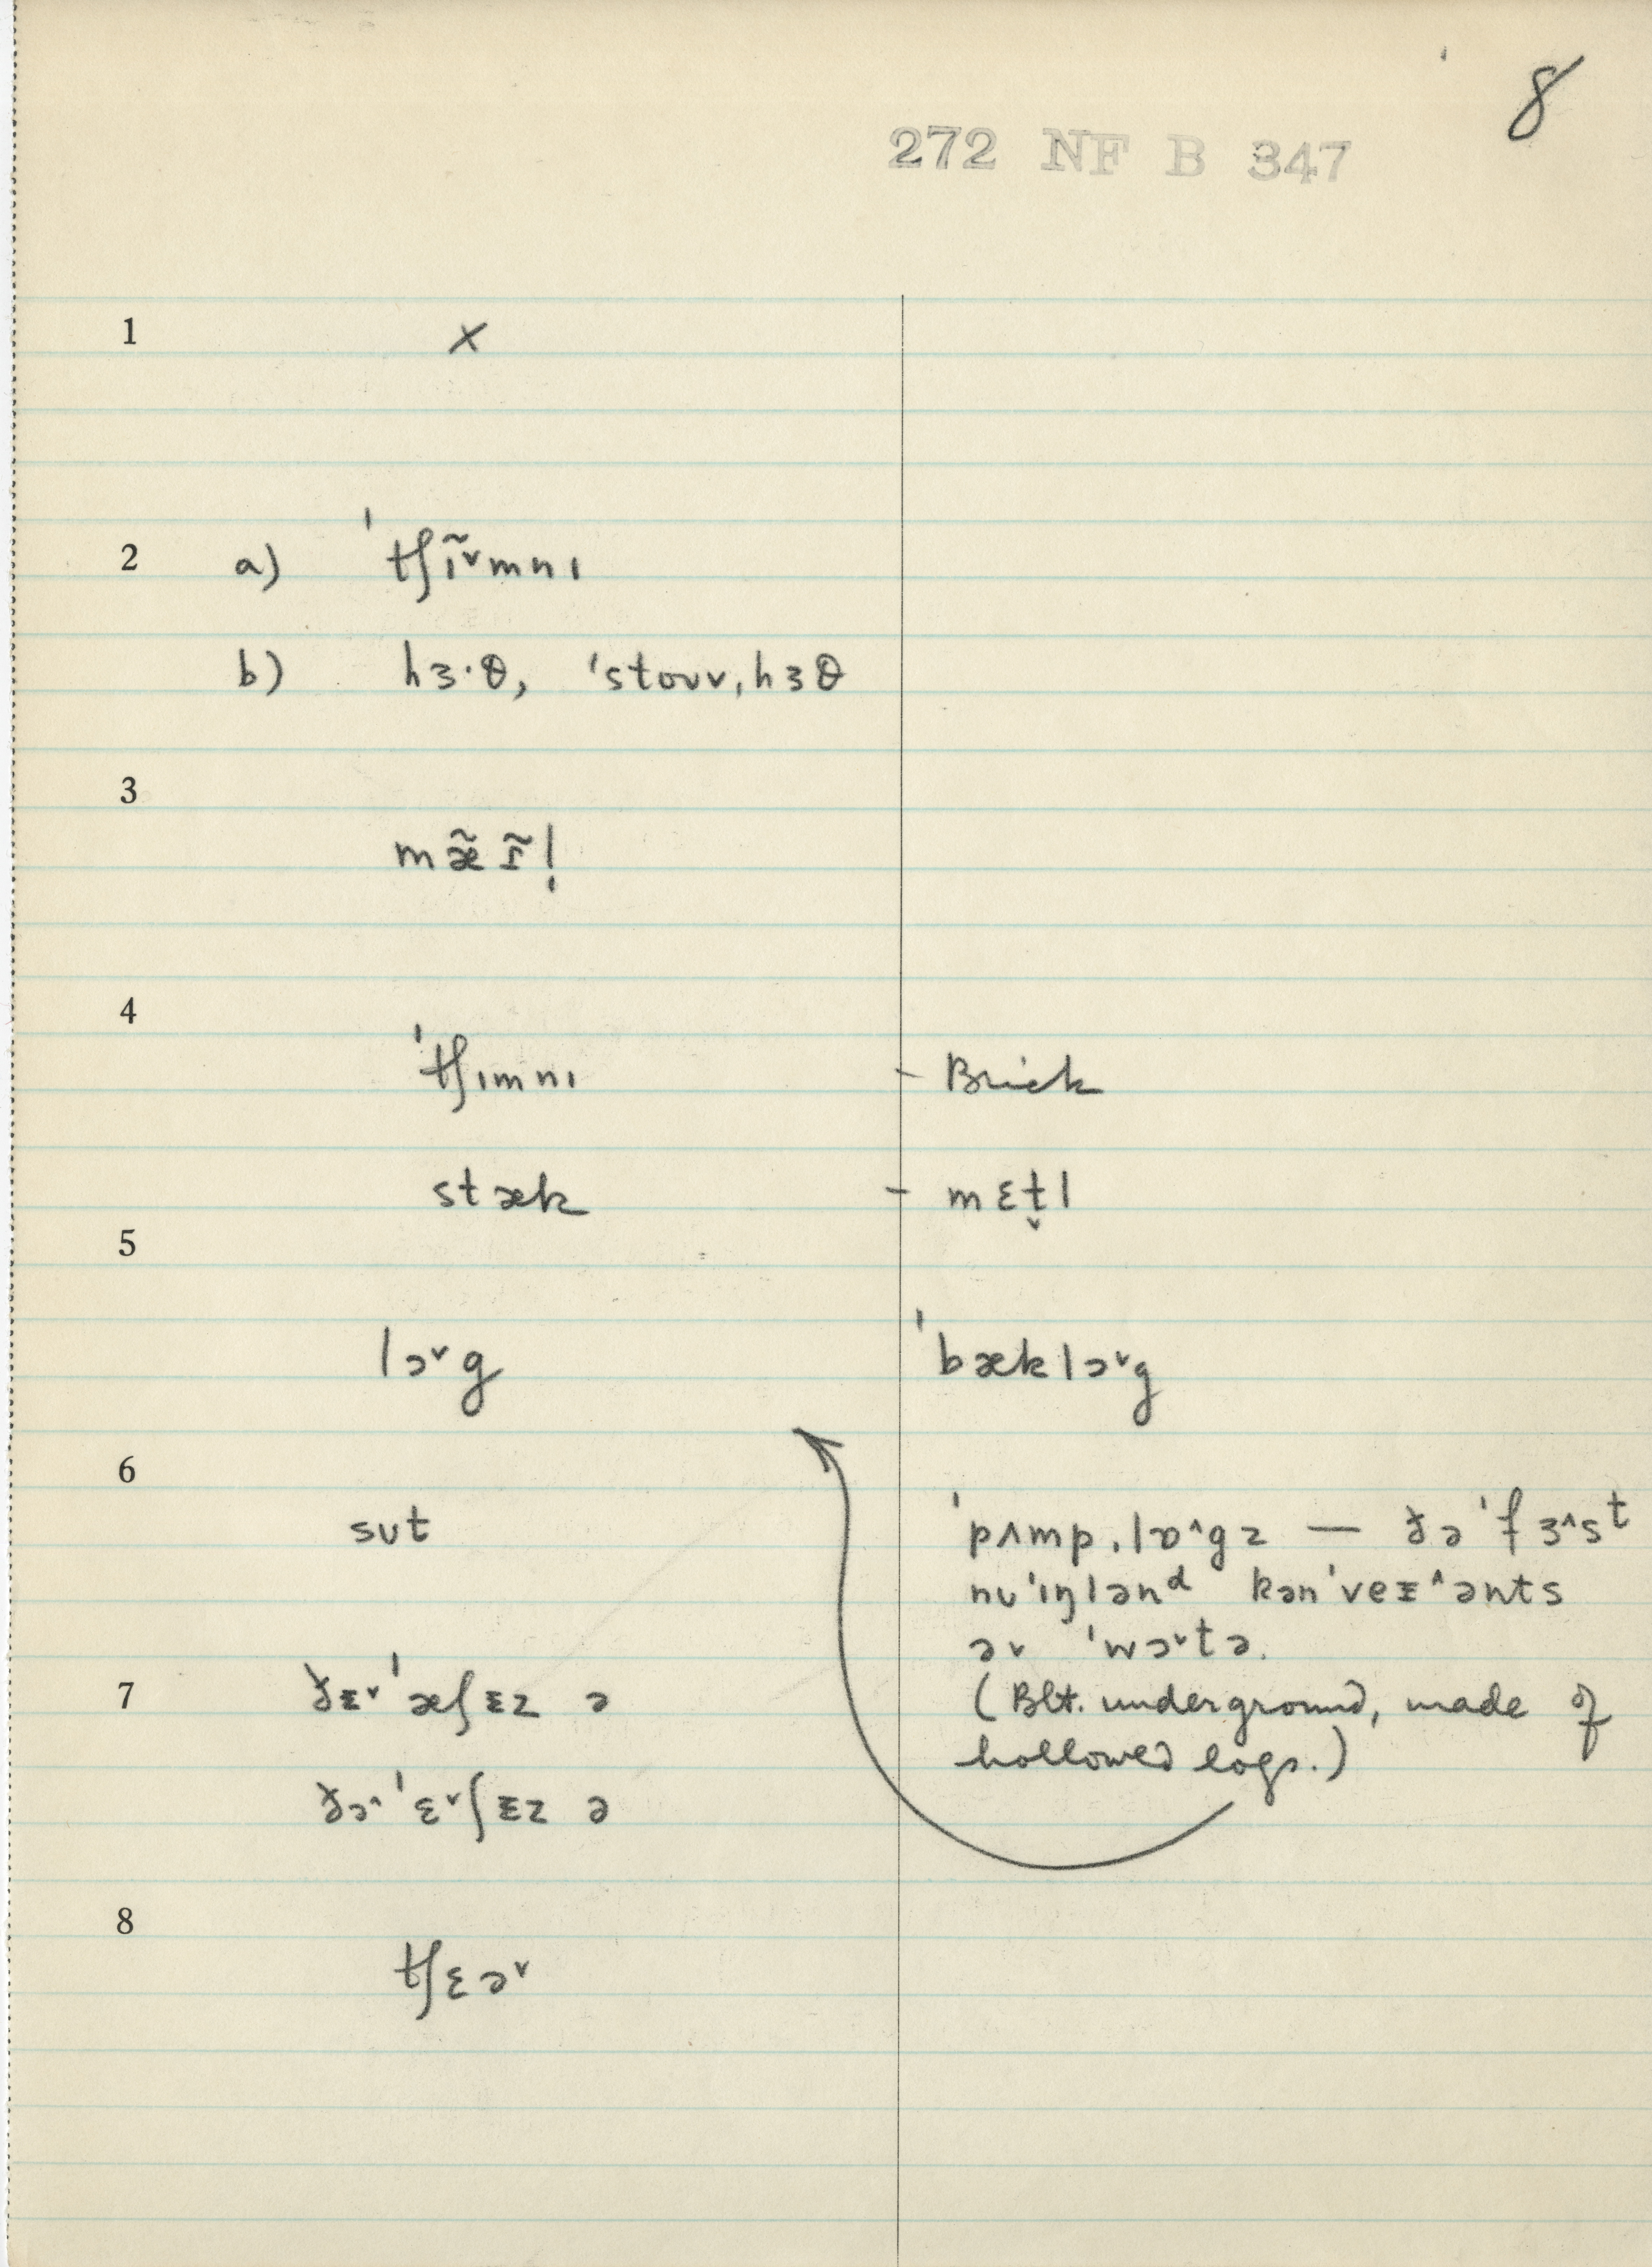 8
272 NF B 347
1 x
2 a) ˈtʃɪ̃ᵛmnɪ
b) hɜ·θ, ˈstoʊv,hɜθ
3
mæ̃ɪ̃!
4
ˈtʃɪmnɪ - Brick
stæk - mɛt̬l
5
lɔᵛg ˈbæklɔᵛg
6
sʊt
ˈpʌmp,lɒ^gz — ðə ˈfɜ^sᵗ
nʊˈɪŋlənᵈ kənˈveɪ^ənts
əv ˈwɔᵛtə.
7 ðɪᵛ ˈæʃɪz ə
(Blt. underground, made of
hollowed logs.)
ðə^ ˈɛᵛʃɪz ə
8
tʃɛəᵛ